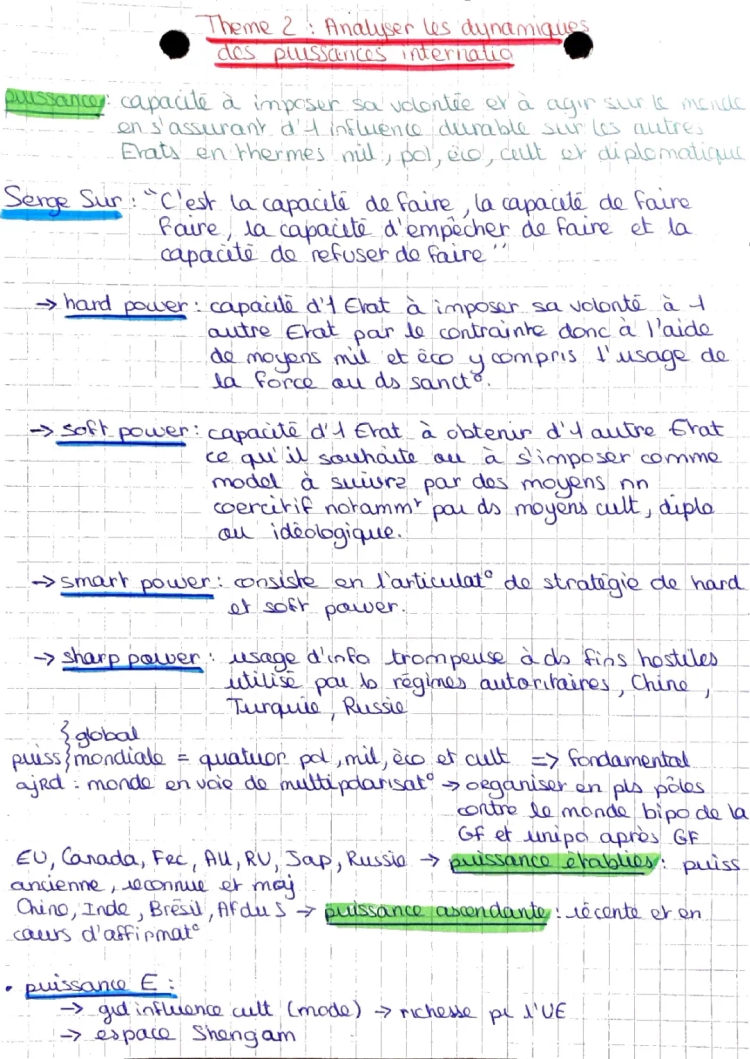 Theme 2 : Analyser les dynamiques
des puissances internatio
puissance : capacité à imposer sa volontée et à agir sur le monde
en s'assurant d'1 influence durable sur les autres
Etats en thermes mil, pol, éco, cult et diplomatique
Serge Sur : "C'est la capacité de faire, la capacité de faire
faire, la capacité d'empêcher de faire et la
capacité de refuser de faire"
→ hard power : capacité d'1 Etat à imposer sa volonté à 1
autre Etat par le contrainte donc à l'aide
de moyens mil et éco y compris l'usage de
la force ou ds sanct°.
→ soft power : capacité d'1 Etat à obtenir d'1 autre Etat
ce qu'il souhaite ou à s'imposer comme
model à suivre par des moyens nn
coercitif notammt par ds moyens cult, diplo
ou idéologique.
→ smart power : consiste en l'articulat° de stratégie de hard
et soft power.
→ sharp power : usage d'info trompeuse à ds fins hostiles
utilisé par ls régimes autoritaires, Chine,
Turquie, Russie
global
puiss } mondiale = quatuor pol, mil, éco et cult => fondamental
ajRd : monde en voie de multipolarisat° → oeganiser en pls pôles
contre le monde bipo de la
Gf et unipo après GF
EU, Canada, Frc, All, RU, Jap, Russie → puissance établies : puiss
ancienne, reconnue et maj
Chine, Inde, Brésil, Af du S → puissance ascendante : récente et en
cours d'affirmat°
• puissance E :
→ gd influence cult (mode) → richesse pr l'UE
→ espace Shengam